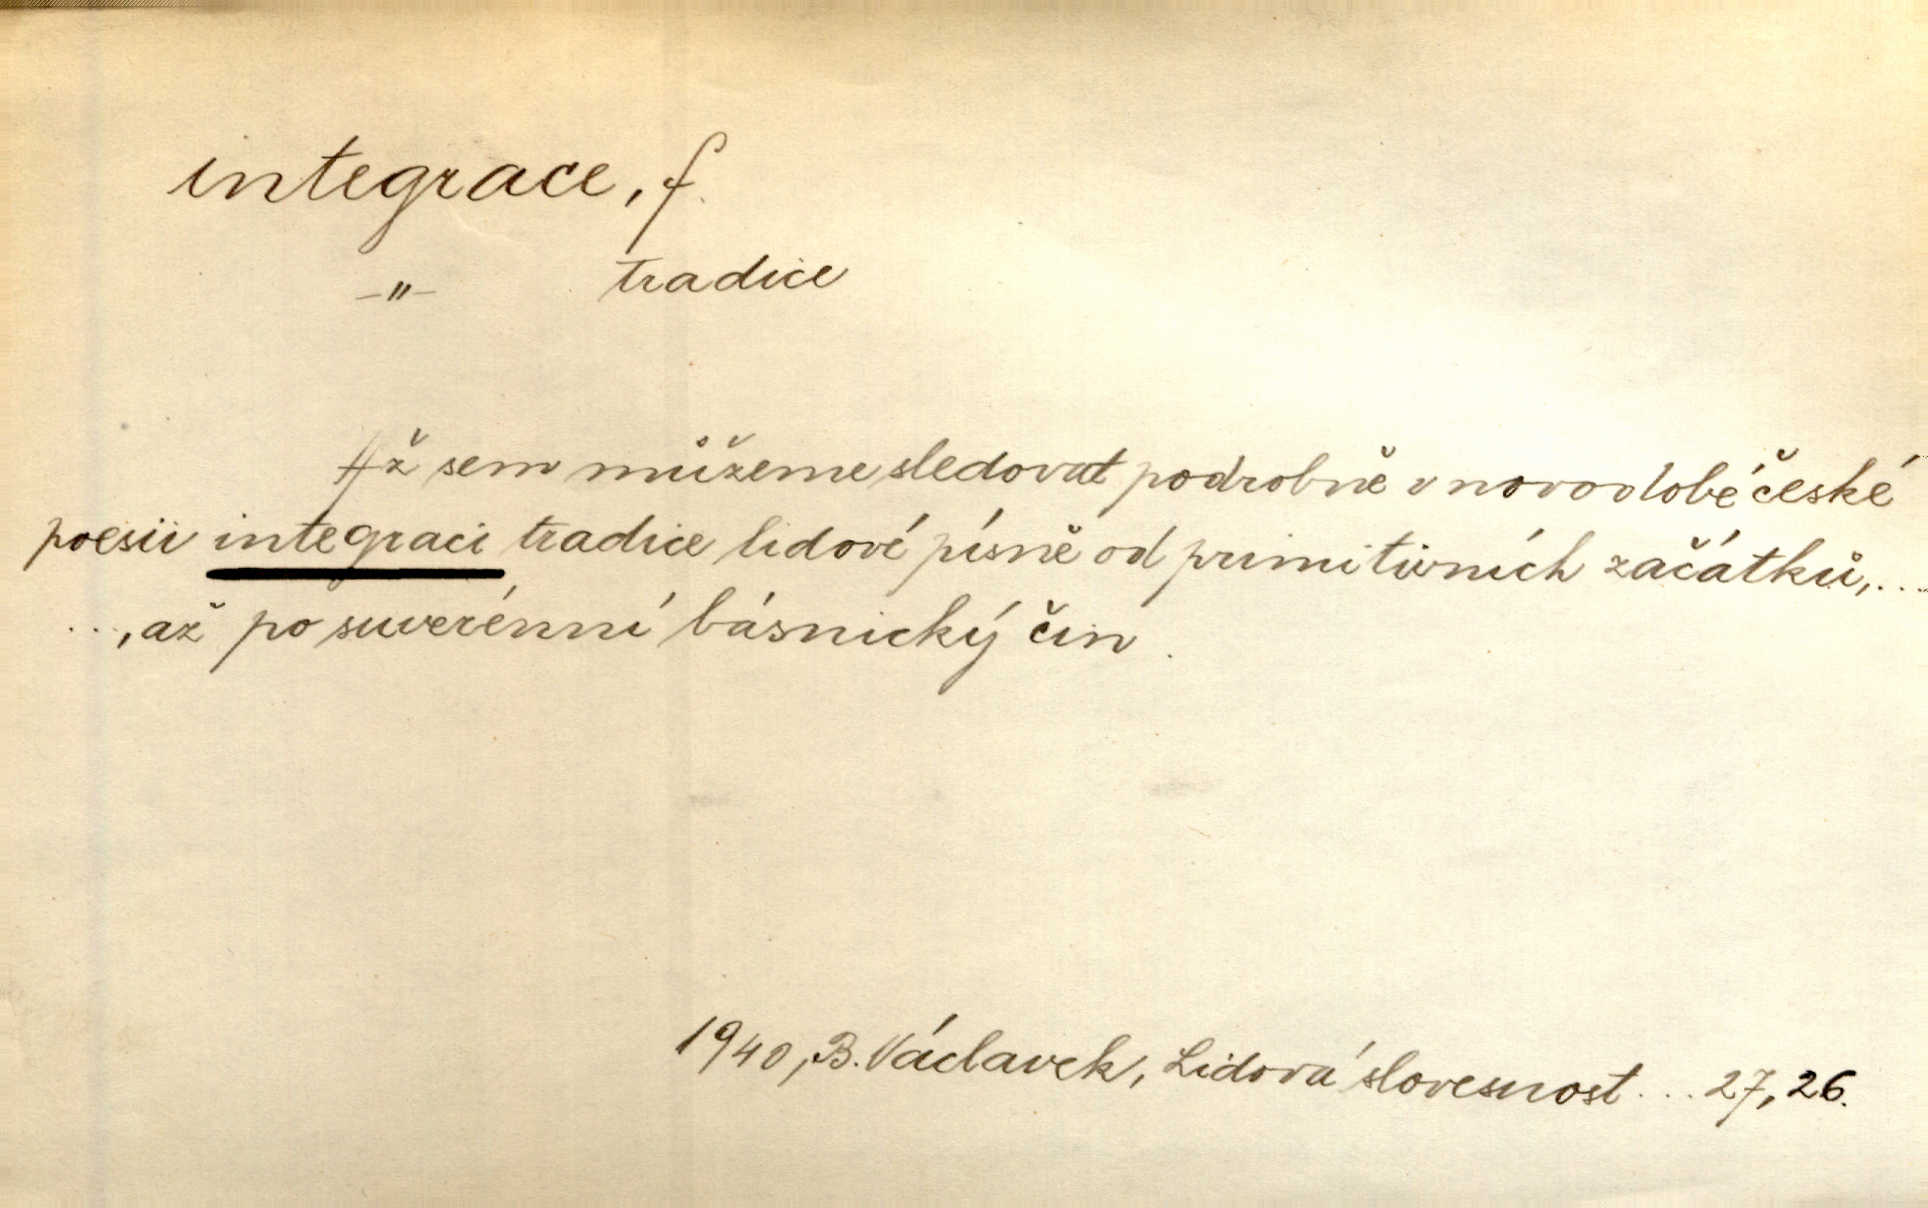 integrace, f.
–"– tradice
Až sem můžeme sledovat podrobně v novodobé české
poesii integraci tradice lidové písně od primitivních začátků, ...
..., až po suverénní básnický čin.
1940, B. Václavek, Lidová slovesnost ... 27, 26.